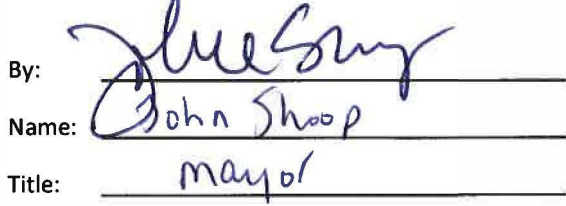 By:
Name: John Shoop
Title: mayor